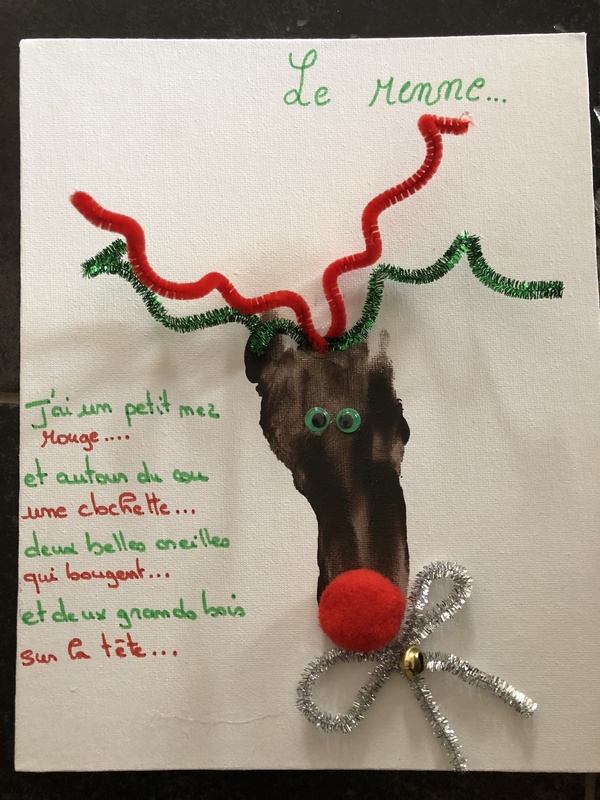 Le renne...
J'ai un petit nez
rouge....
et autour du cou
une clochette...
deux belles oreilles
qui bougent...
et deux grands bois
sur la tête...